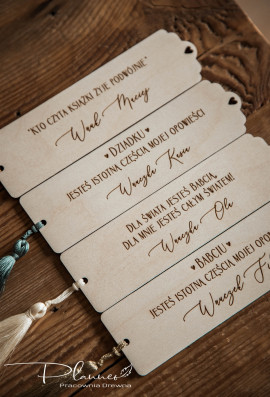 "KTO CZYTA KSIĄŻKI ŻYJE PODWÓJNIE"
DZIADKU
JESTEŚ ISTOTNĄ CZĘŚCIĄ MOJEJ OPOWIEŚCI
DLA ŚWIATA JESTEŚ BABCIĄ,
DLA MNIE JESTEŚ CAŁYM ŚWIATEM!
Ola
BABCIU
JESTEŚ ISTOTNĄ CZĘŚCIĄ MOJEJ
Planner
Pracownia Drewna